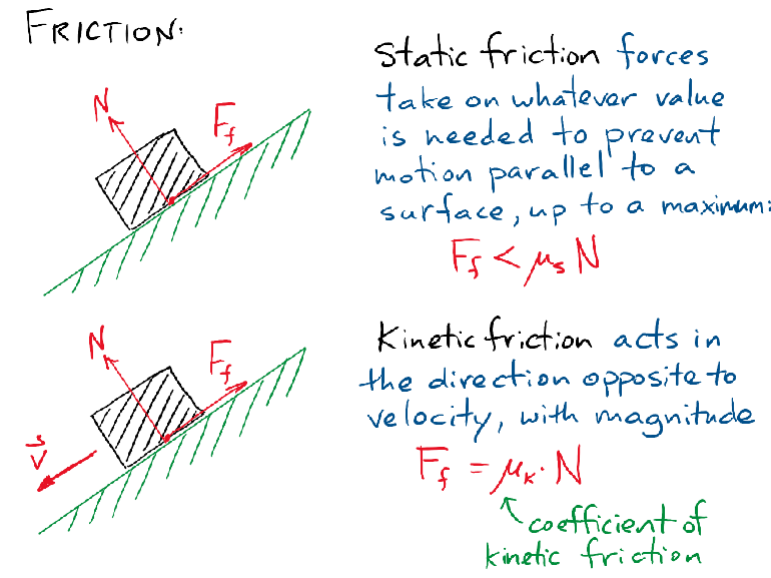 FRICTION:
Static friction forces
take on whatever value
is needed to prevent
motion parallel to a
surface, up to a maximum:
F_f < μ_s N
N
F_f
Kinetic friction acts in
the direction opposite to
velocity, with magnitude
F_f = μ_k · N
coefficient of
kinetic friction
N
F_f
v⃗